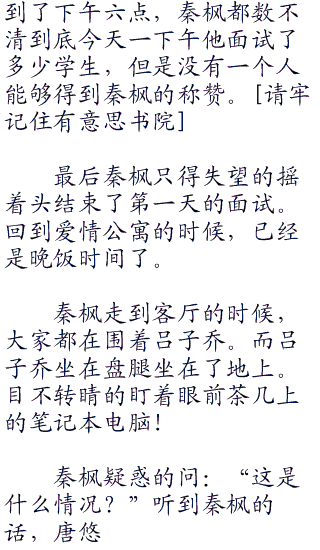 到了下午六点，秦枫都数不
清到底今天一下午他面试了
多少学生，但是没有一个人
能够得到秦枫的称赞。[请牢
记住有意思书院]
最后秦枫只得失望的摇
着头结束了第一天的面试。
回到爱情公寓的时候，已经
是晚饭时间了。
秦枫走到客厅的时候，
大家都在围着吕子乔。而吕
子乔坐在盘腿坐在了地上。
目不转睛的盯着眼前茶几上
的笔记本电脑!
秦枫疑惑的问：“这是
什么情况？”听到秦枫的
话，唐悠